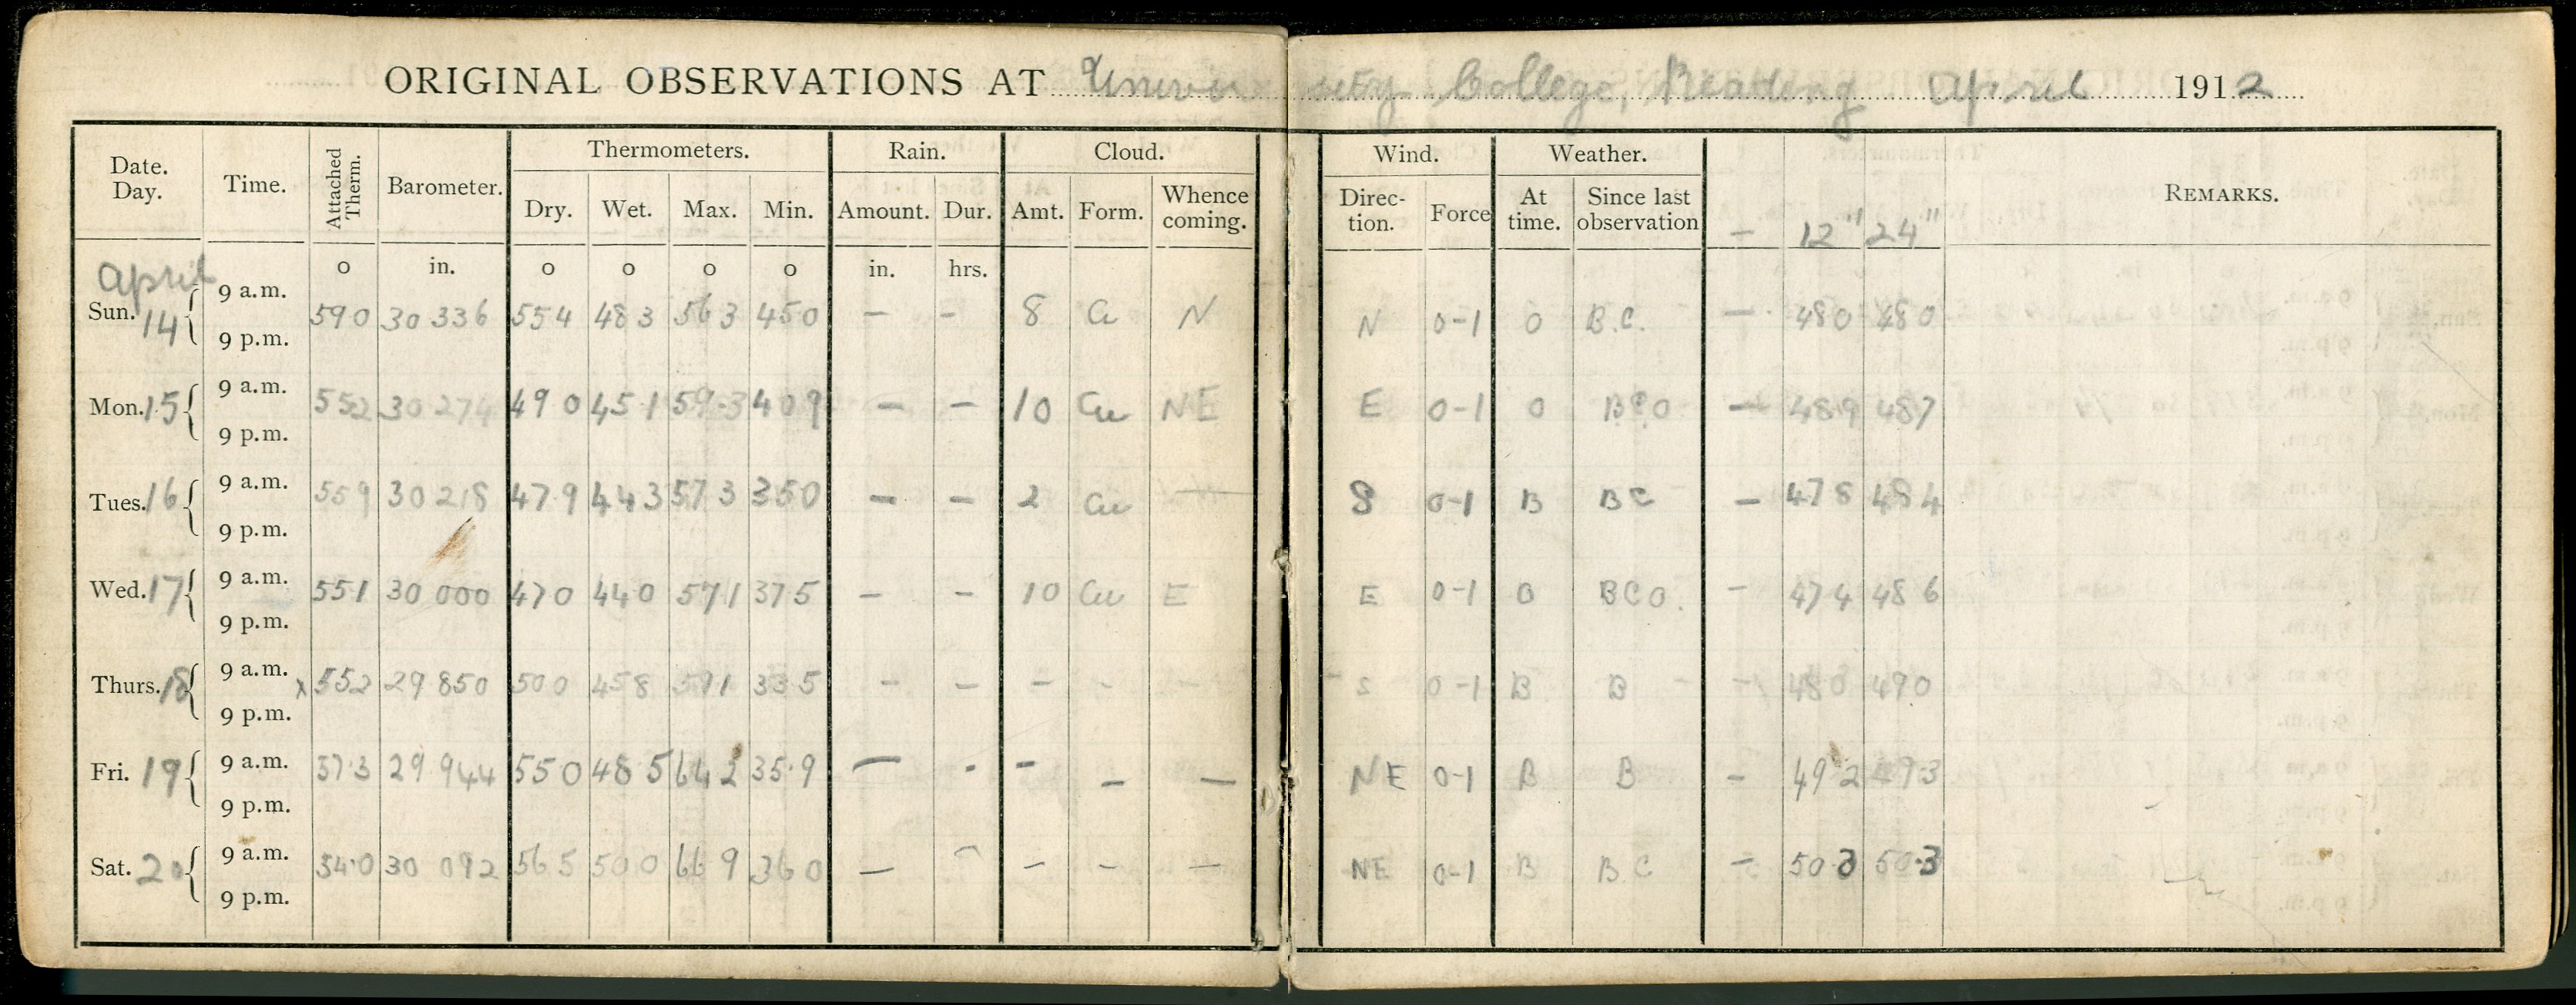 ORIGINAL OBSERVATIONS AT University College, Reading April 1912
Date. Day. Time. Attached Therm. Barometer. Thermometers. Rain. Cloud. Wind. Weather. REMARKS.
Dry. Wet. Max. Min. Amount. Dur. Amt. Form. Whence coming. Direc- tion. Force At time. Since last observation — 12" 24"
April o in. o o o o in. hrs.
Sun. 14 9 a.m. 590 30 336 554 483 563 450 — — 8 Cu N N 0-1 O B.C. — 480 480
9 p.m.
Mon. 15 9 a.m. 552 30 274 490 451 59.3 409 — — 10 Cu NE E 0-1 O BCO — 489 487
9 p.m.
Tues. 16 9 a.m. 559 30 218 479 443 573 350 — — 2 Cu — S 0-1 B BC — 478 484
9 p.m.
Wed. 17 9 a.m. 551 30 000 470 440 571 375 — — 10 Cu E E 0-1 O BCO. — 474 486
9 p.m.
Thurs. 18 9 a.m. x 552 29 850 500 458 591 335 — — — - — S 0-1 B B — 480 490
9 p.m.
Fri. 19 9 a.m. 57.3 29 944 550 48 5 642 35.9 — - — — — NE 0-1 B B — 492 49.3
9 p.m.
Sat. 20 9 a.m. 54.0 30 092 565 500 669 360 — — — — — NE 0-1 B BC — 50.3
9 p.m.